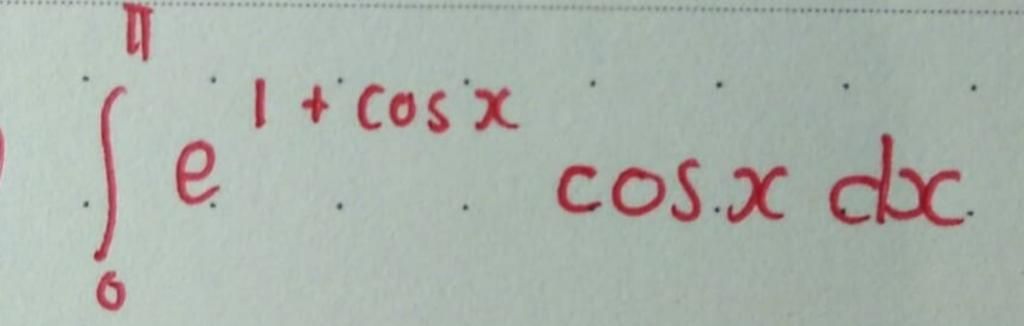 ∫₀^π e^(1 + cos x) cos x dx